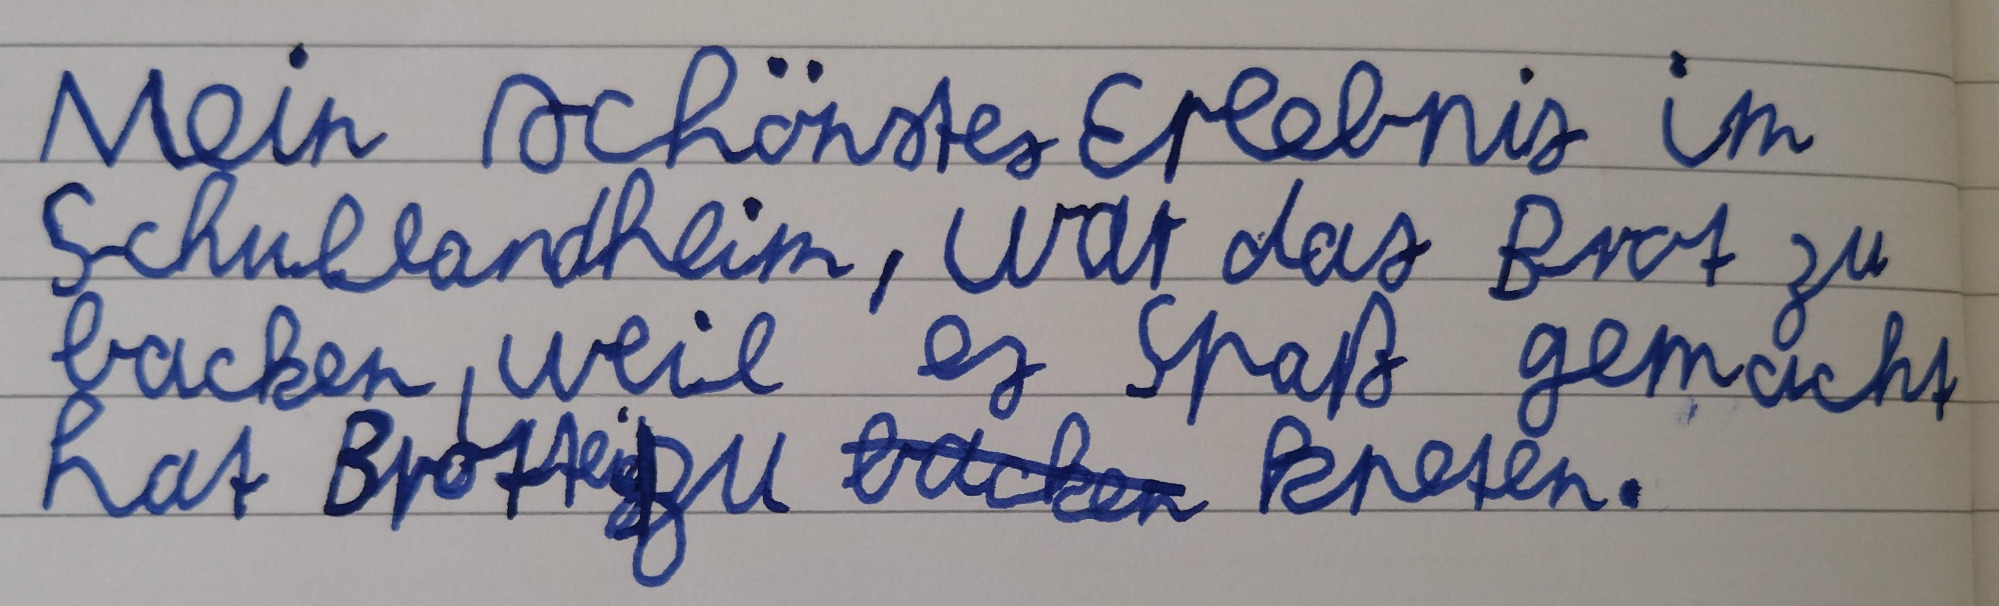 Mein schönstes Erlebnis im
Schullandheim, war das Brot zu
backen, weil es Spaß gemacht
hat Brotteig zu backen kneten.